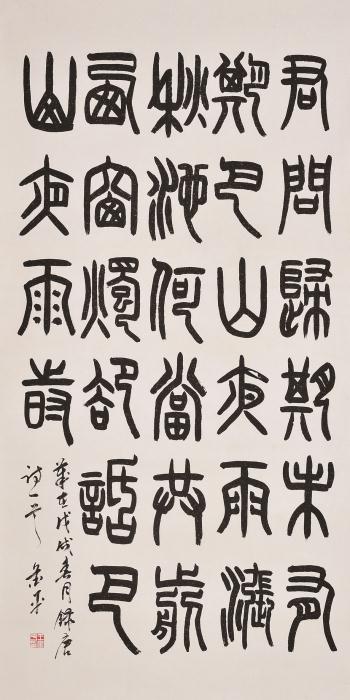 君問歸期未有
期巴山夜雨漲
秋池何當共剪
西窗燭卻話巴
山夜雨時
歲在戊戌春月録唐
詩一首